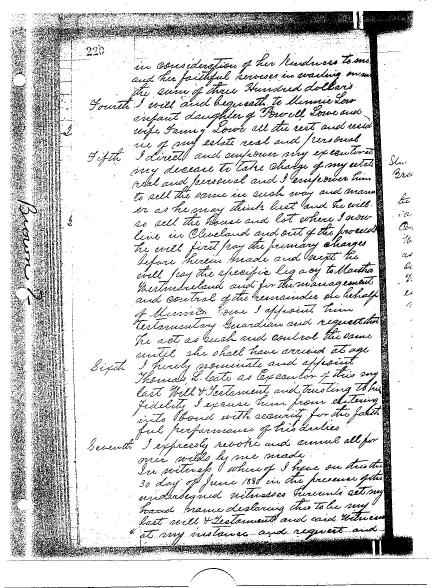 220
in consideration of her kindness to me
and her faithful services in waiting on me
the sum of three Hundred dollars
Fourth I will and bequeath to Minnie Low
infant daughter of Powell Lowe and
wife Fanny Lowe all the rest and resid
ue of my estate real and personal
Fifth I direct and empower my executor at
my decease to take charge of my estate
real and personal and I empower him
to sell the same in such way and mann
er as he may think best and he will
so sell the house and lot where I now
live in Cleveland and out of the proceeds
he will first pay the primary charges
before herein made and next he
will pay the specific legacy to Martha
Westmoreland and for the management
and control of the remainder on behalf
of Minnie Lowe I appoint him
testamentary Guardian and request that
he act as such and control the same
until she shall have arrived at age
Sixth I hereby nominate and appoint
Thomas L Cate as Executor of this my
last Will & Testament and trusting to his
fidelity I excuse him from entering
into bond with security for the faith
ful performance of his duties
Seventh I expressly revoke and annul all for
mer wills by me made
In witness whereof I have on this the
30 day of June 1880 in the presence of the
undersigned witnesses hereunto set my
hand name declaring this to be my
last will & Testament and said Witnesses
at my instance and request and